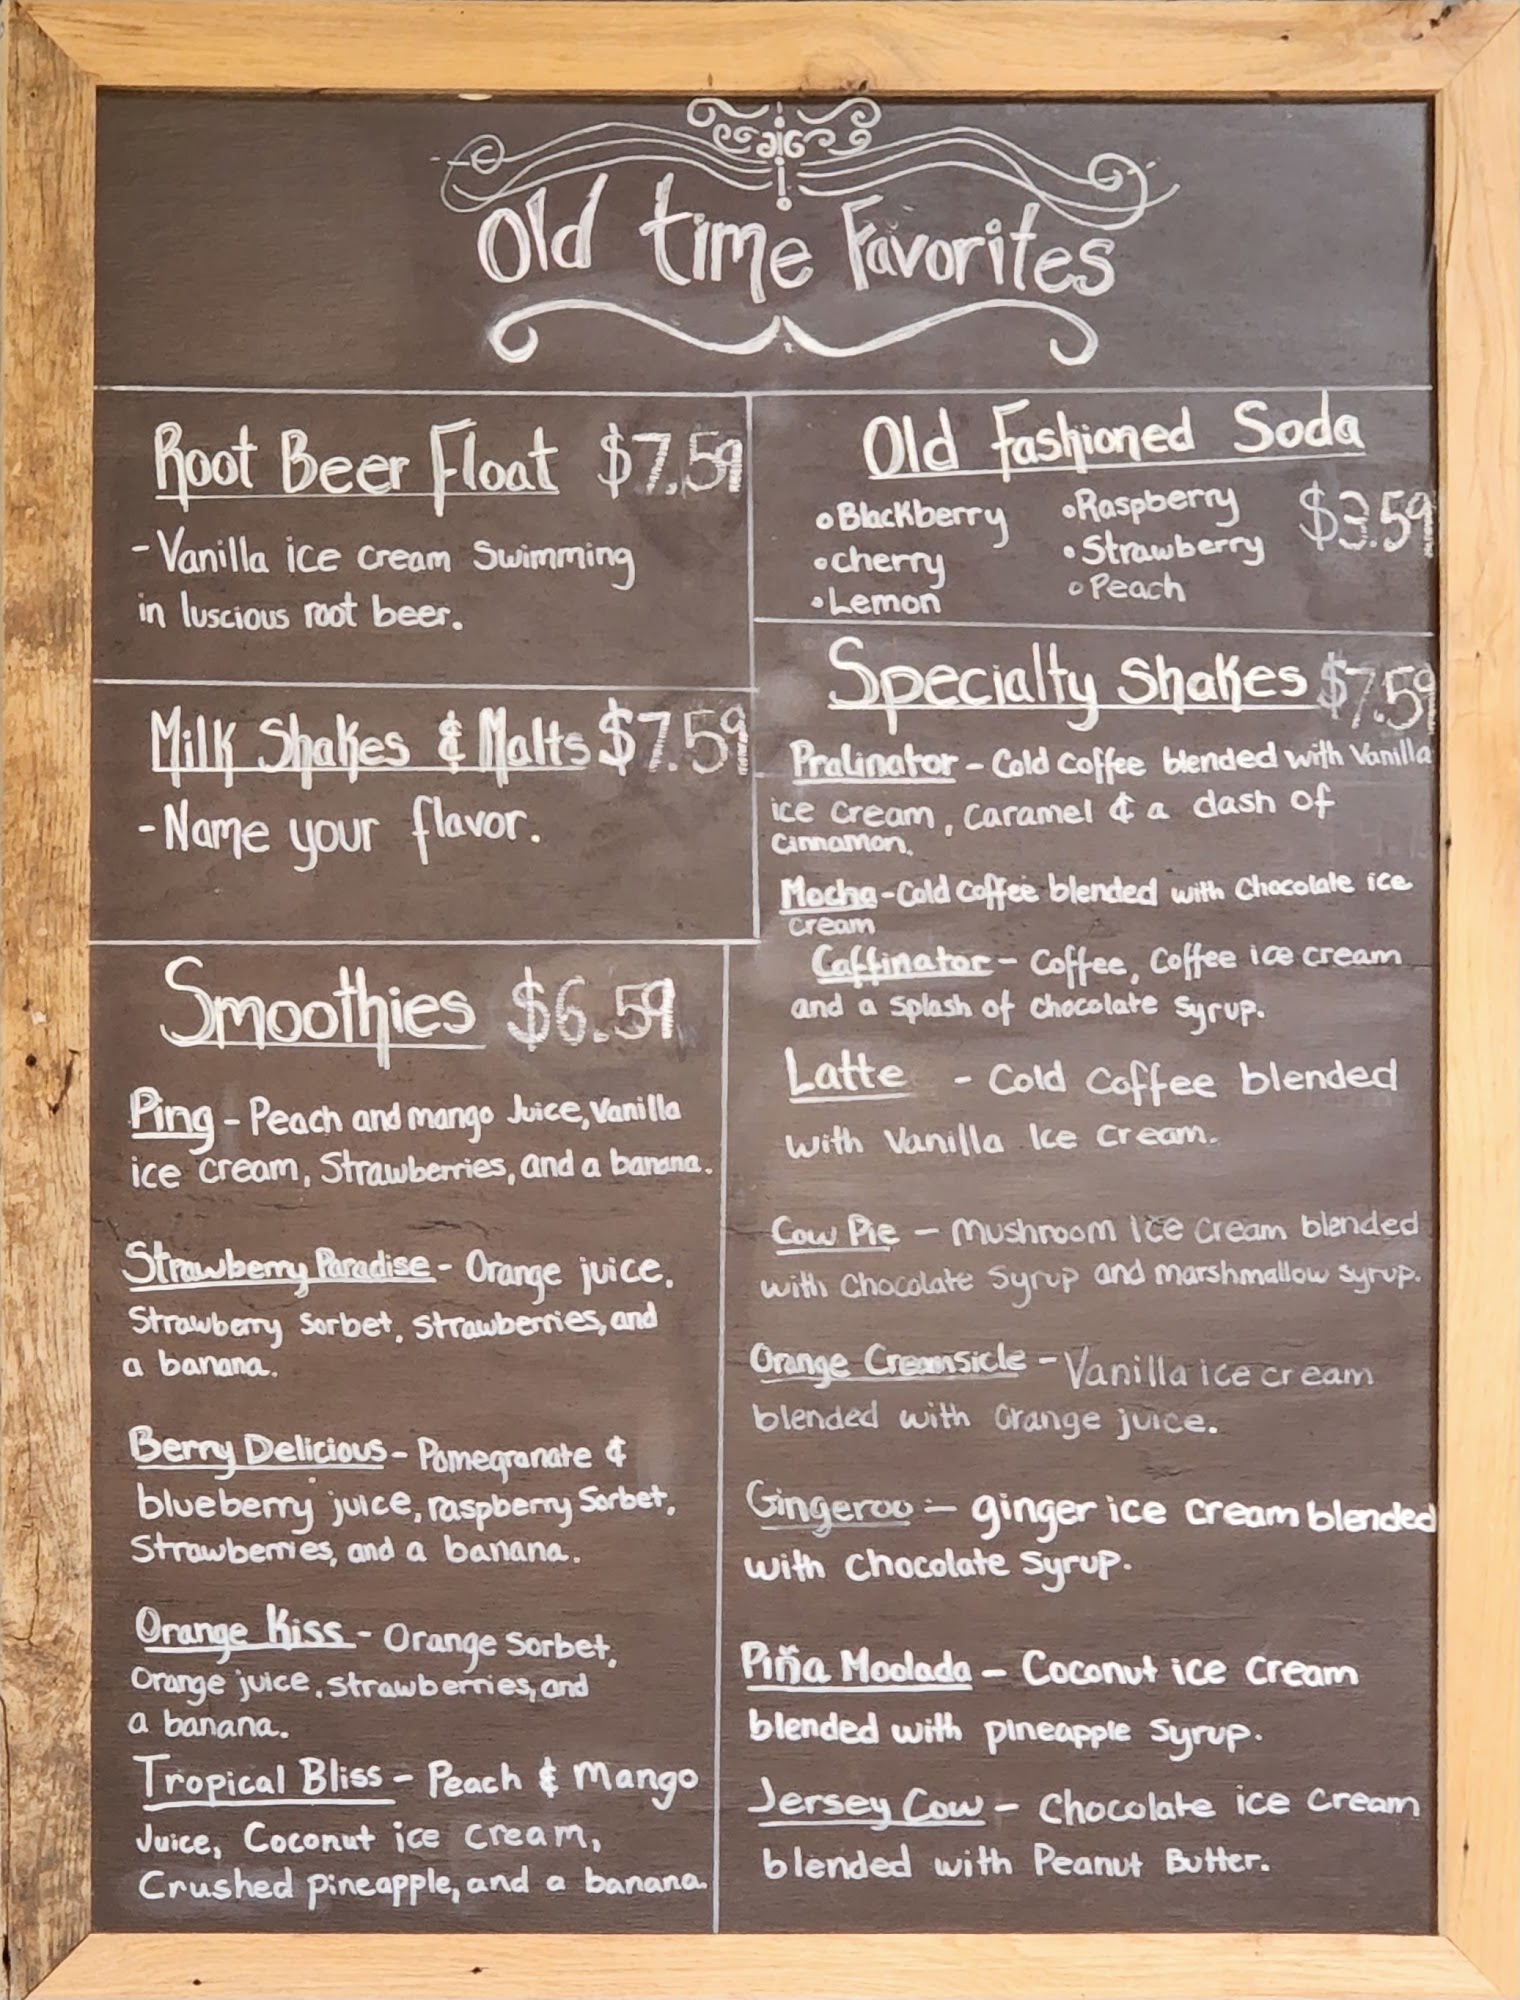 Old time Favorites
Root Beer Float $7.59
- Vanilla ice cream Swimming
in luscious root beer.
Milk Shakes & Malts $7.59
- Name your flavor.
Old Fashioned Soda
• Blackberry
• cherry
• Lemon
• Raspberry
• Strawberry
• Peach
$3.59
Specialty Shakes $7.59
Pralinator - Cold coffee blended with Vanilla
ice cream, caramel & a dash of
cinnamon.
Mocha - Cold coffee blended with Chocolate ice
cream
Caffinator - Coffee, Coffee ice cream
and a splash of chocolate syrup.
Latte - Cold Coffee blended
with Vanilla Ice cream.
Cow Pie - Mushroom Ice cream blended
with Chocolate Syrup and marshmallow syrup.
Orange Creamsicle - Vanilla ice cream
blended with orange juice.
Gingeroo - ginger ice cream blended
with chocolate syrup.
Piña Moolada - Coconut ice cream
blended with pineapple syrup.
Jersey Cow - Chocolate ice cream
blended with Peanut Butter.
Smoothies $6.59
Ping - Peach and mango Juice, Vanilla
ice cream, Strawberries, and a banana.
Strawberry Paradise - Orange juice,
Strawberry Sorbet, strawberries, and
a banana.
Berry Delicious - Pomegranate &
blueberry juice, raspberry Sorbet,
Strawberries, and a banana.
Orange Kiss - Orange Sorbet,
Orange juice, strawberries, and
a banana.
Tropical Bliss - Peach & Mango
Juice, Coconut ice cream,
Crushed pineapple, and a banana.